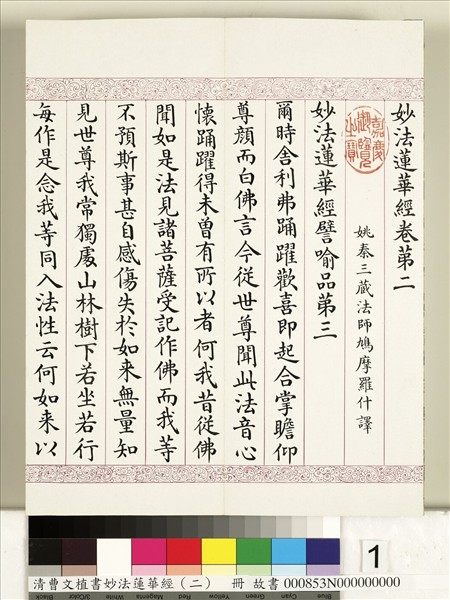 妙法蓮華經卷第二
嘉慶御覽之寶
姚秦三藏法師鳩摩羅什譯
妙法蓮華經譬喻品第三
爾時舍利弗踊躍歡喜即起合掌瞻仰
尊顏而白佛言今從世尊聞此法音心
懷踊躍得未曾有所以者何我昔從佛
聞如是法見諸菩薩受記作佛而我等
不預斯事甚自感傷失於如来無量知
見世尊我常獨處山林樹下若坐若行
每作是念我等同入法性云何如来以
1
Blue Cyan Green Yellow Red Magenta White 3/Color Black
清曹文植書妙法蓮華經（二） 冊 故書 000853N000000000